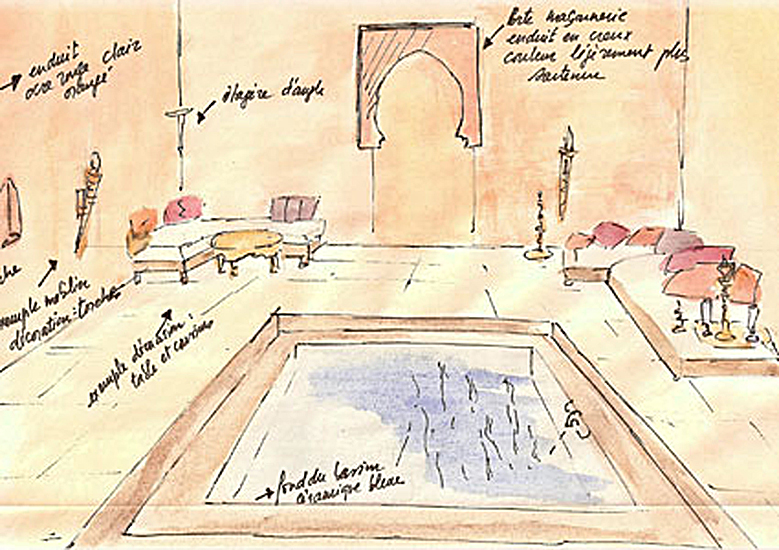 enduit
ocre rouge clair
orangé
étagère d'angle
Porte maçonnerie
enduit en creux
couleur légèrement plus
soutenue
exemple mobilier
décoration : torches
exemple décoration :
table et coussins
fond du bassin
céramique bleue